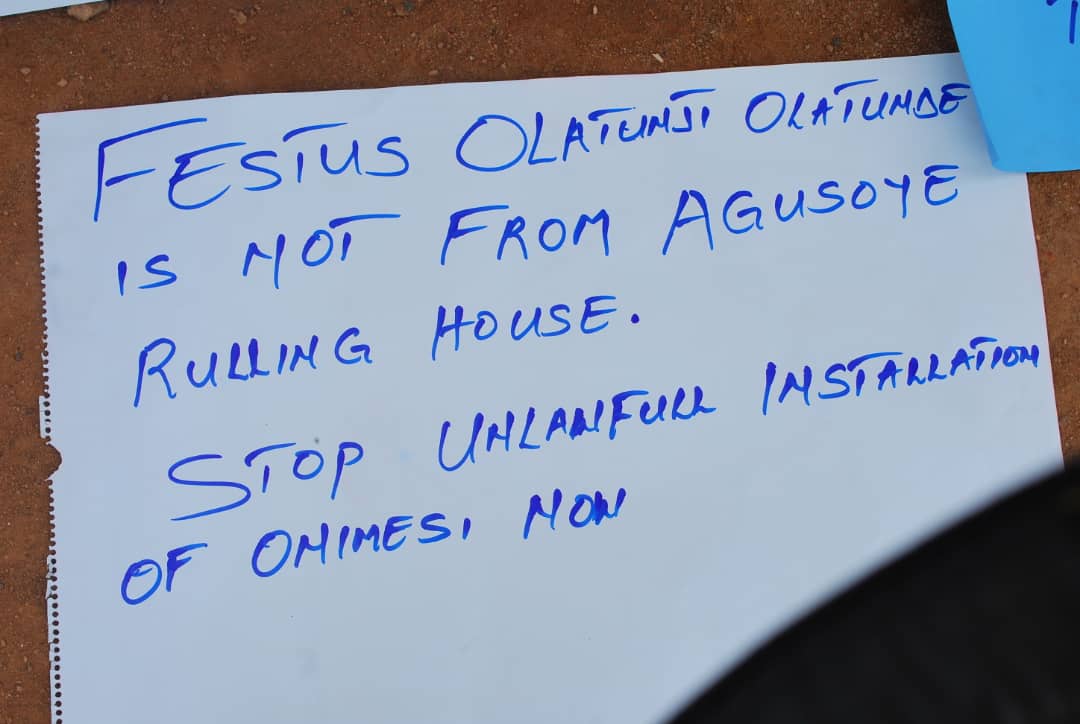 FESTUS OLATUNJI OLATUNDE
IS NOT FROM AGUSOYE
RULLING HOUSE.
STOP UNLAWFULL INSTALLATION
OF ONIMESI NOW